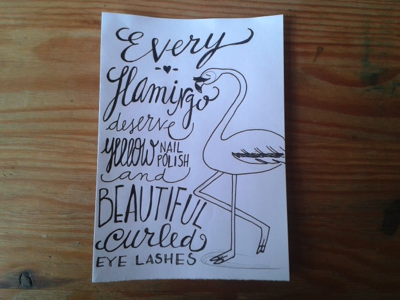 Every
flamingo
deserve
yellow NAIL POLISH
and
BEAUTIFUL
curled
EYE LASHES